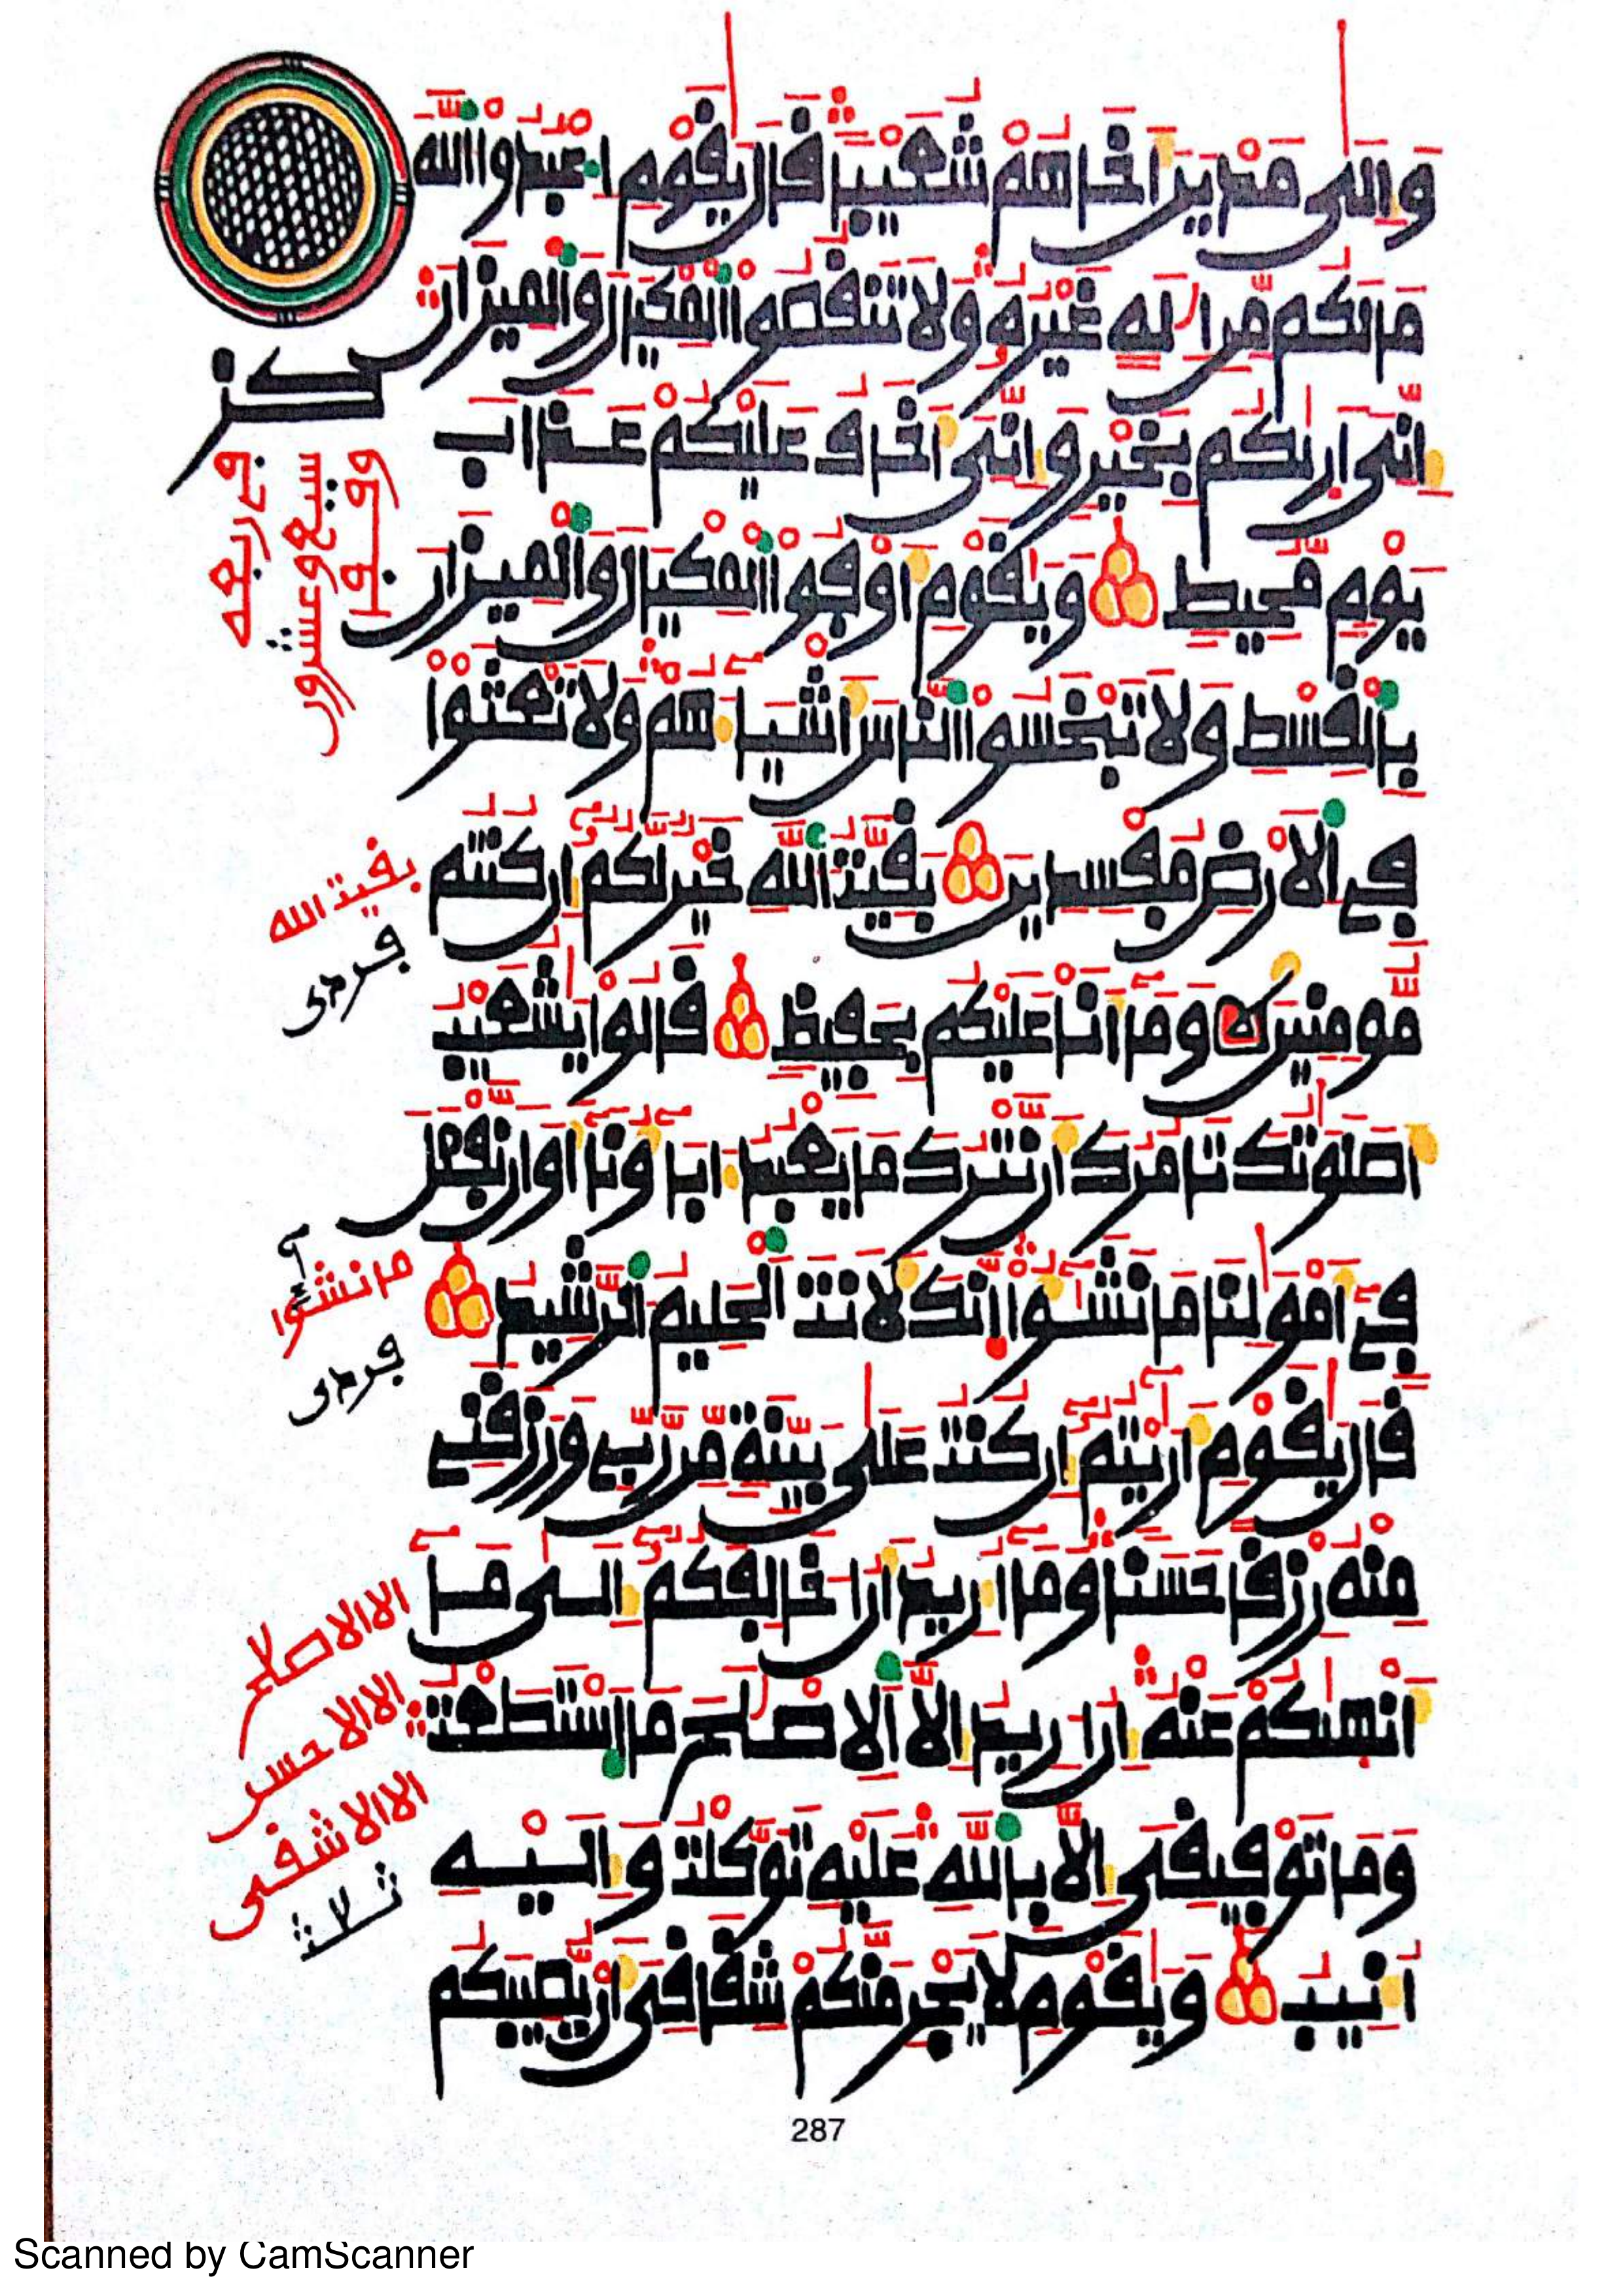 وَإِلَىٰ مَدْيَنَ أَخَاهُمْ شُعَيْبًا قَالَ يَٰقَوْمِ اِ۟عْبُدُوا۟ اللَّهَ
مَا لَكُم مِّنِ اِلَٰهٍ غَيْرُهُۥ وَلَا تَنقُصُوا۟ اُ۬لْمِكْيَالَ وَالْمِيزَانَ
إِنِّيَ أَرَىٰكُم بِخَيْرٍ وَإِنِّيَ أَخَافُ عَلَيْكُمْ عَذَابَ
يَوْمٍ مُّحِيطٍ وَيَٰقَوْمِ أَوْفُوا۟ اُ۬لْمِكْيَالَ وَالْمِيزَانَ
بِالْقِسْطِ وَلَا تَبْخَسُوا۟ اُ۬لنَّاسَ أَشْيَآءَهُمْ وَلَا تَعْثَوْا۟
فِے اِ۬لَارْضِ مُفْسِدِينَ بَقِيَّتُ اُ۬للَّهِ خَيْرٌ لَّكُمُۥٓ إِن كُنتُم
مُّومِنِينَ وَمَآ أَنَا عَلَيْكُم بِحَفِيظٍ قَالُوا۟ يَٰشُعَيْبُ
أَصَلَوَٰتُكَ تَامُرُكَ أَن نَّتْرُكَ مَا يَعْبُدُ ءَابَآؤُنَآ أَوَ ان نَّفْعَلَ
فِےٓ أَمْوَٰلِنَا مَا نَشَٰٓؤُا۟ اِنَّكَ لَأَنتَ اَ۬لْحَلِيمُ اُ۬لرَّشِيدُ
قَالَ يَٰقَوْمِ أَرَٰٓيْتُمُۥٓ إِن كُنتُ عَلَىٰ بَيِّنَةٍ مِّن رَّبِّے وَرَزَقَنِے
مِنْهُ رِزْقًا حَسَنًا وَمَآ أُرِيدُ أَنُ اخَالِفَكُمُۥٓ إِلَىٰ مَآ
أَنْهَىٰكُمْ عَنْهُ إِنُ ارِيدُ إِلَّا اَ۬لِاصْلَٰحَ مَا اَ۪سْتَطَعْتُ
وَمَا تَوْفِيقِيَ إِلَّا بِاللَّهِ عَلَيْهِ تَوَكَّلْتُ وَإِلَيْهِ
أُنِيبُ وَيَٰقَوْمِ لَا يَجْرِمَنَّكُمْ شِقَاقِيَ أَنْ يُّصِيبَكُم
كز
وقفا
سبع وعشرون
فے ربعه
بقيت الله
فردى
ما نشؤا
فردى
الا الاصلح
الا الا حسن
الا الاشقى
ثلث
287
Scanned by CamScanner